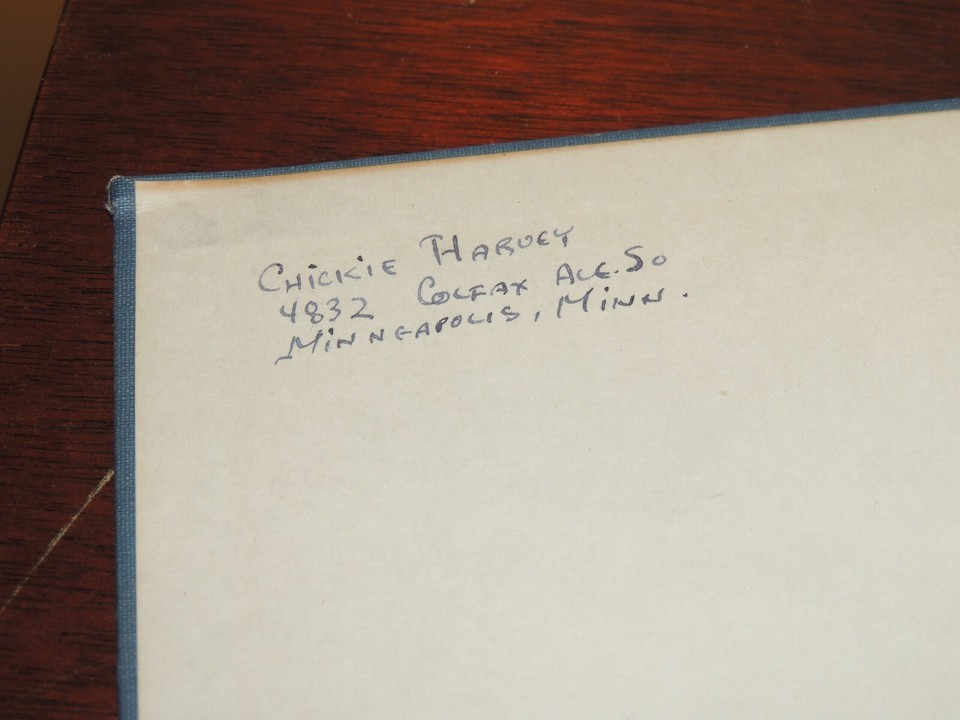 Chickie Harvey
4832 Colfax Ave. So
Minneapolis, Minn.